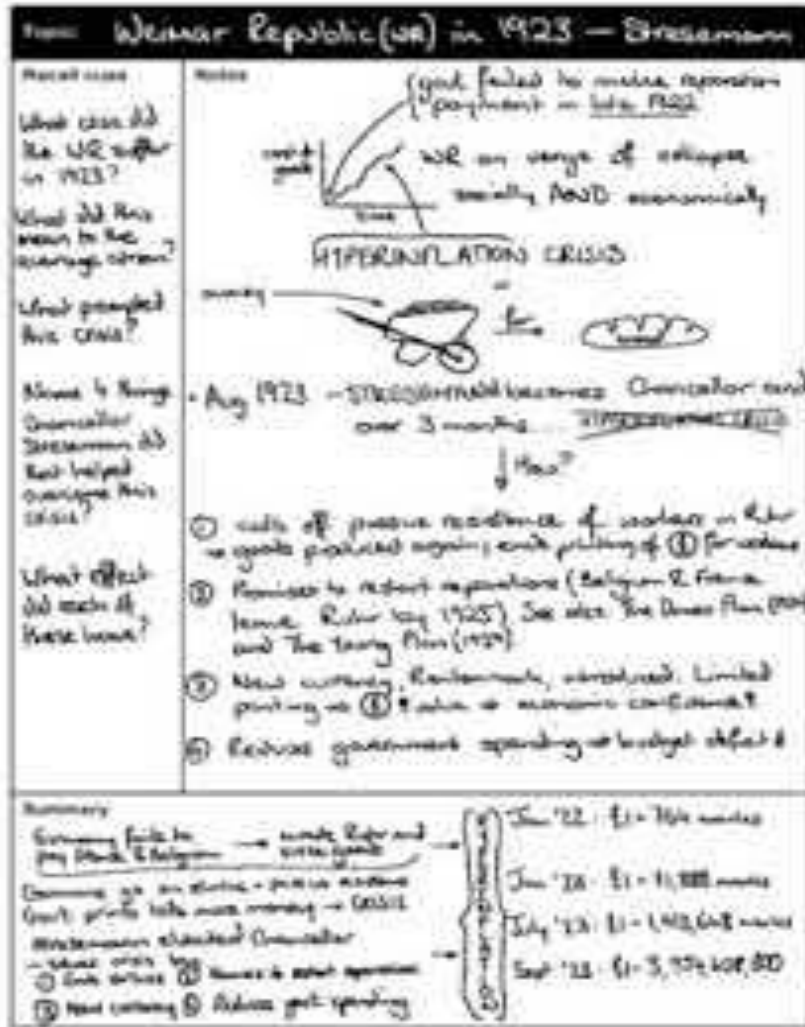 Topic: Weimar Republic (WR) in 1923 — Stresemann
Recall cues
What crisis did
the WR suffer
in 1923?
What did this
mean to the
average citizen?
What prompted
this crisis?
Name 4 things
Chancellor
Stresemann did
that helped
overcome this
crisis?
What effect
did each of
these have?
Notes
govt failed to make reparation
payment in late 1922
cost of
goods
time
WR on verge of collapse
socially AND economically
HYPERINFLATION CRISIS
money
for
• Aug 1923 — STRESEMANN becomes Chancellor and
over 3 months...
How?
① calls off passive resistance of workers in Ruhr
→ goods produced again; ends printing of for
② Promises to restart reparations (Belgium & France
leave Ruhr by 1925) See also The Dawes Plan
and The Young Plan (1929)
③ New currency, Rentenmark, introduced. Limited
printing → value → economic confidence ↑
④ Reduces government spending → budget deficit ↓
Summary
Germany fails to
pay & Belgium → invade Ruhr and
goods
Germans go on strike
Govt prints lots more money → CRISIS
Stresemann elected Chancellor
— crisis by
① Ends strikes ② to restart reparations
③ New currency ④ Reduces govt spending
Jan '22 : £1 = 764 marks
Jan '23 : marks
July '23 : marks
Sept '23 :